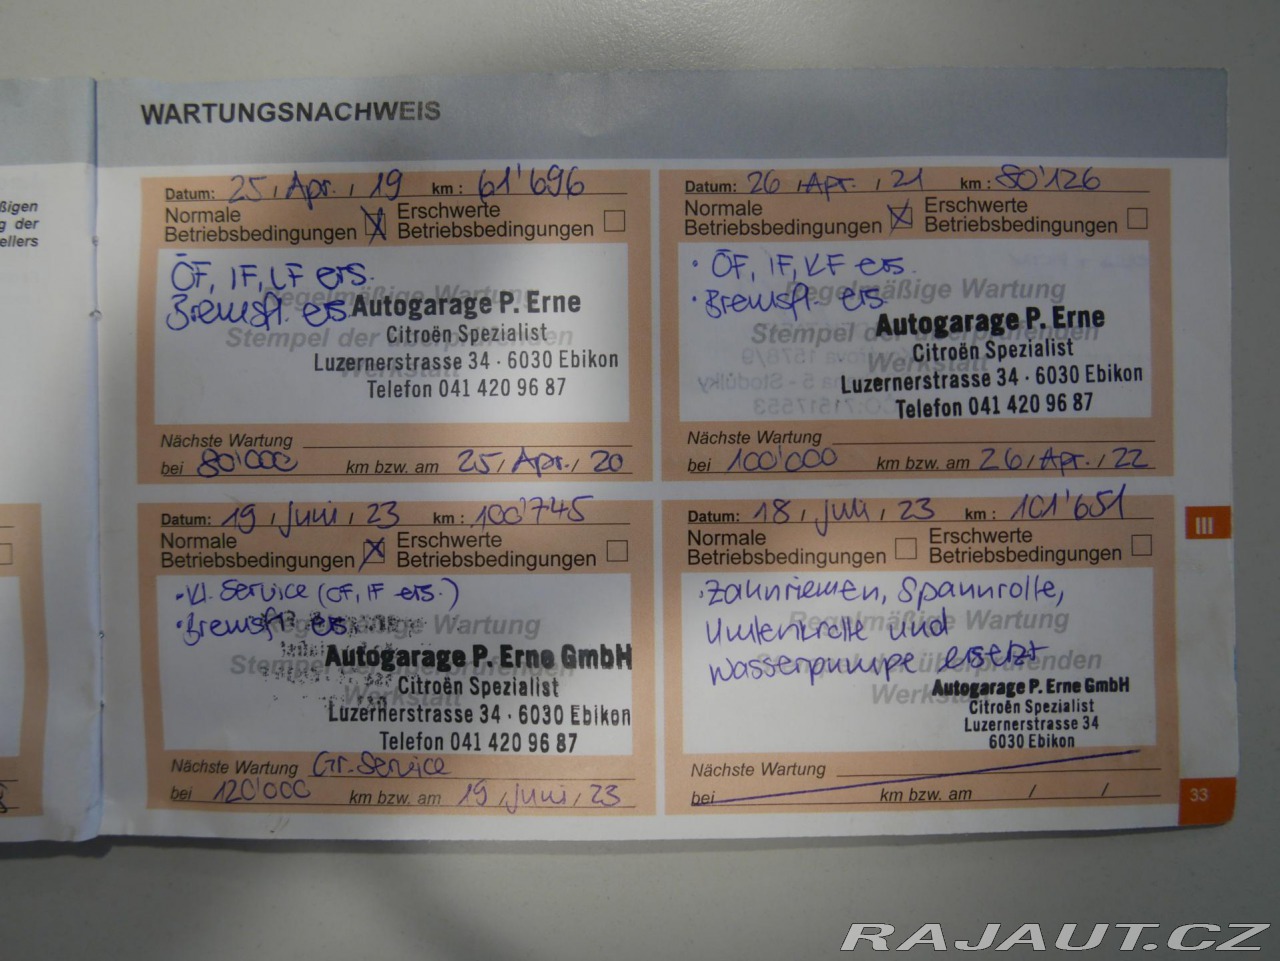 WARTUNGSNACHWEIS
ßigen
g der
ellers
Datum: 25 / Apr. / 19 km : 61'696
Normale Betriebsbedingungen X Erschwerte Betriebsbedingungen
ÖF, IF, LF ers.
Bremsfl. ers.
Regelmäßige Wartung
Stempel der überprüfenden
Werkstatt
Autogarage P. Erne
Citroën Spezialist
Luzernerstrasse 34 · 6030 Ebikon
Telefon 041 420 96 87
Nächste Wartung
bei 80'000 km bzw. am 25 / Apr. / 20
Datum: 26 / Apr. / 21 km : 80'126
Normale Betriebsbedingungen X Erschwerte Betriebsbedingungen
· ÖF, IF, LF ers.
· Bremsfl. ers.
Regelmäßige Wartung
Stempel der überprüfenden
Werkstatt
Autogarage P. Erne
Citroën Spezialist
Luzernerstrasse 34 · 6030 Ebikon
Telefon 041 420 96 87
Nächste Wartung
bei 100'000 km bzw. am 26 / Apr. / 22
Datum: 19 / Juni / 23 km : 100'745
Normale Betriebsbedingungen X Erschwerte Betriebsbedingungen
· Kl. Service (ÖF, IF ers.)
· Bremsfl. ers.
Regelmäßige Wartung
Stempel der überprüfenden
Werkstatt
Autogarage P. Erne GmbH
Citroën Spezialist
Luzernerstrasse 34 · 6030 Ebikon
Telefon 041 420 96 87
Nächste Wartung Gr. Service
bei 120'000 km bzw. am 19 / Juni / 23
Datum: 18 / Juli / 23 km : 101'651
Normale Betriebsbedingungen Erschwerte Betriebsbedingungen
· Zahnriemen, Spannrolle,
Umlenkrolle und
Wasserpumpe ersetzt
Regelmäßige Wartung
Stempel der überprüfenden
Werkstatt
Autogarage P. Erne GmbH
Citroën Spezialist
Luzernerstrasse 34
6030 Ebikon
Nächste Wartung
bei km bzw. am / /
III
33
RAJAUT.CZ